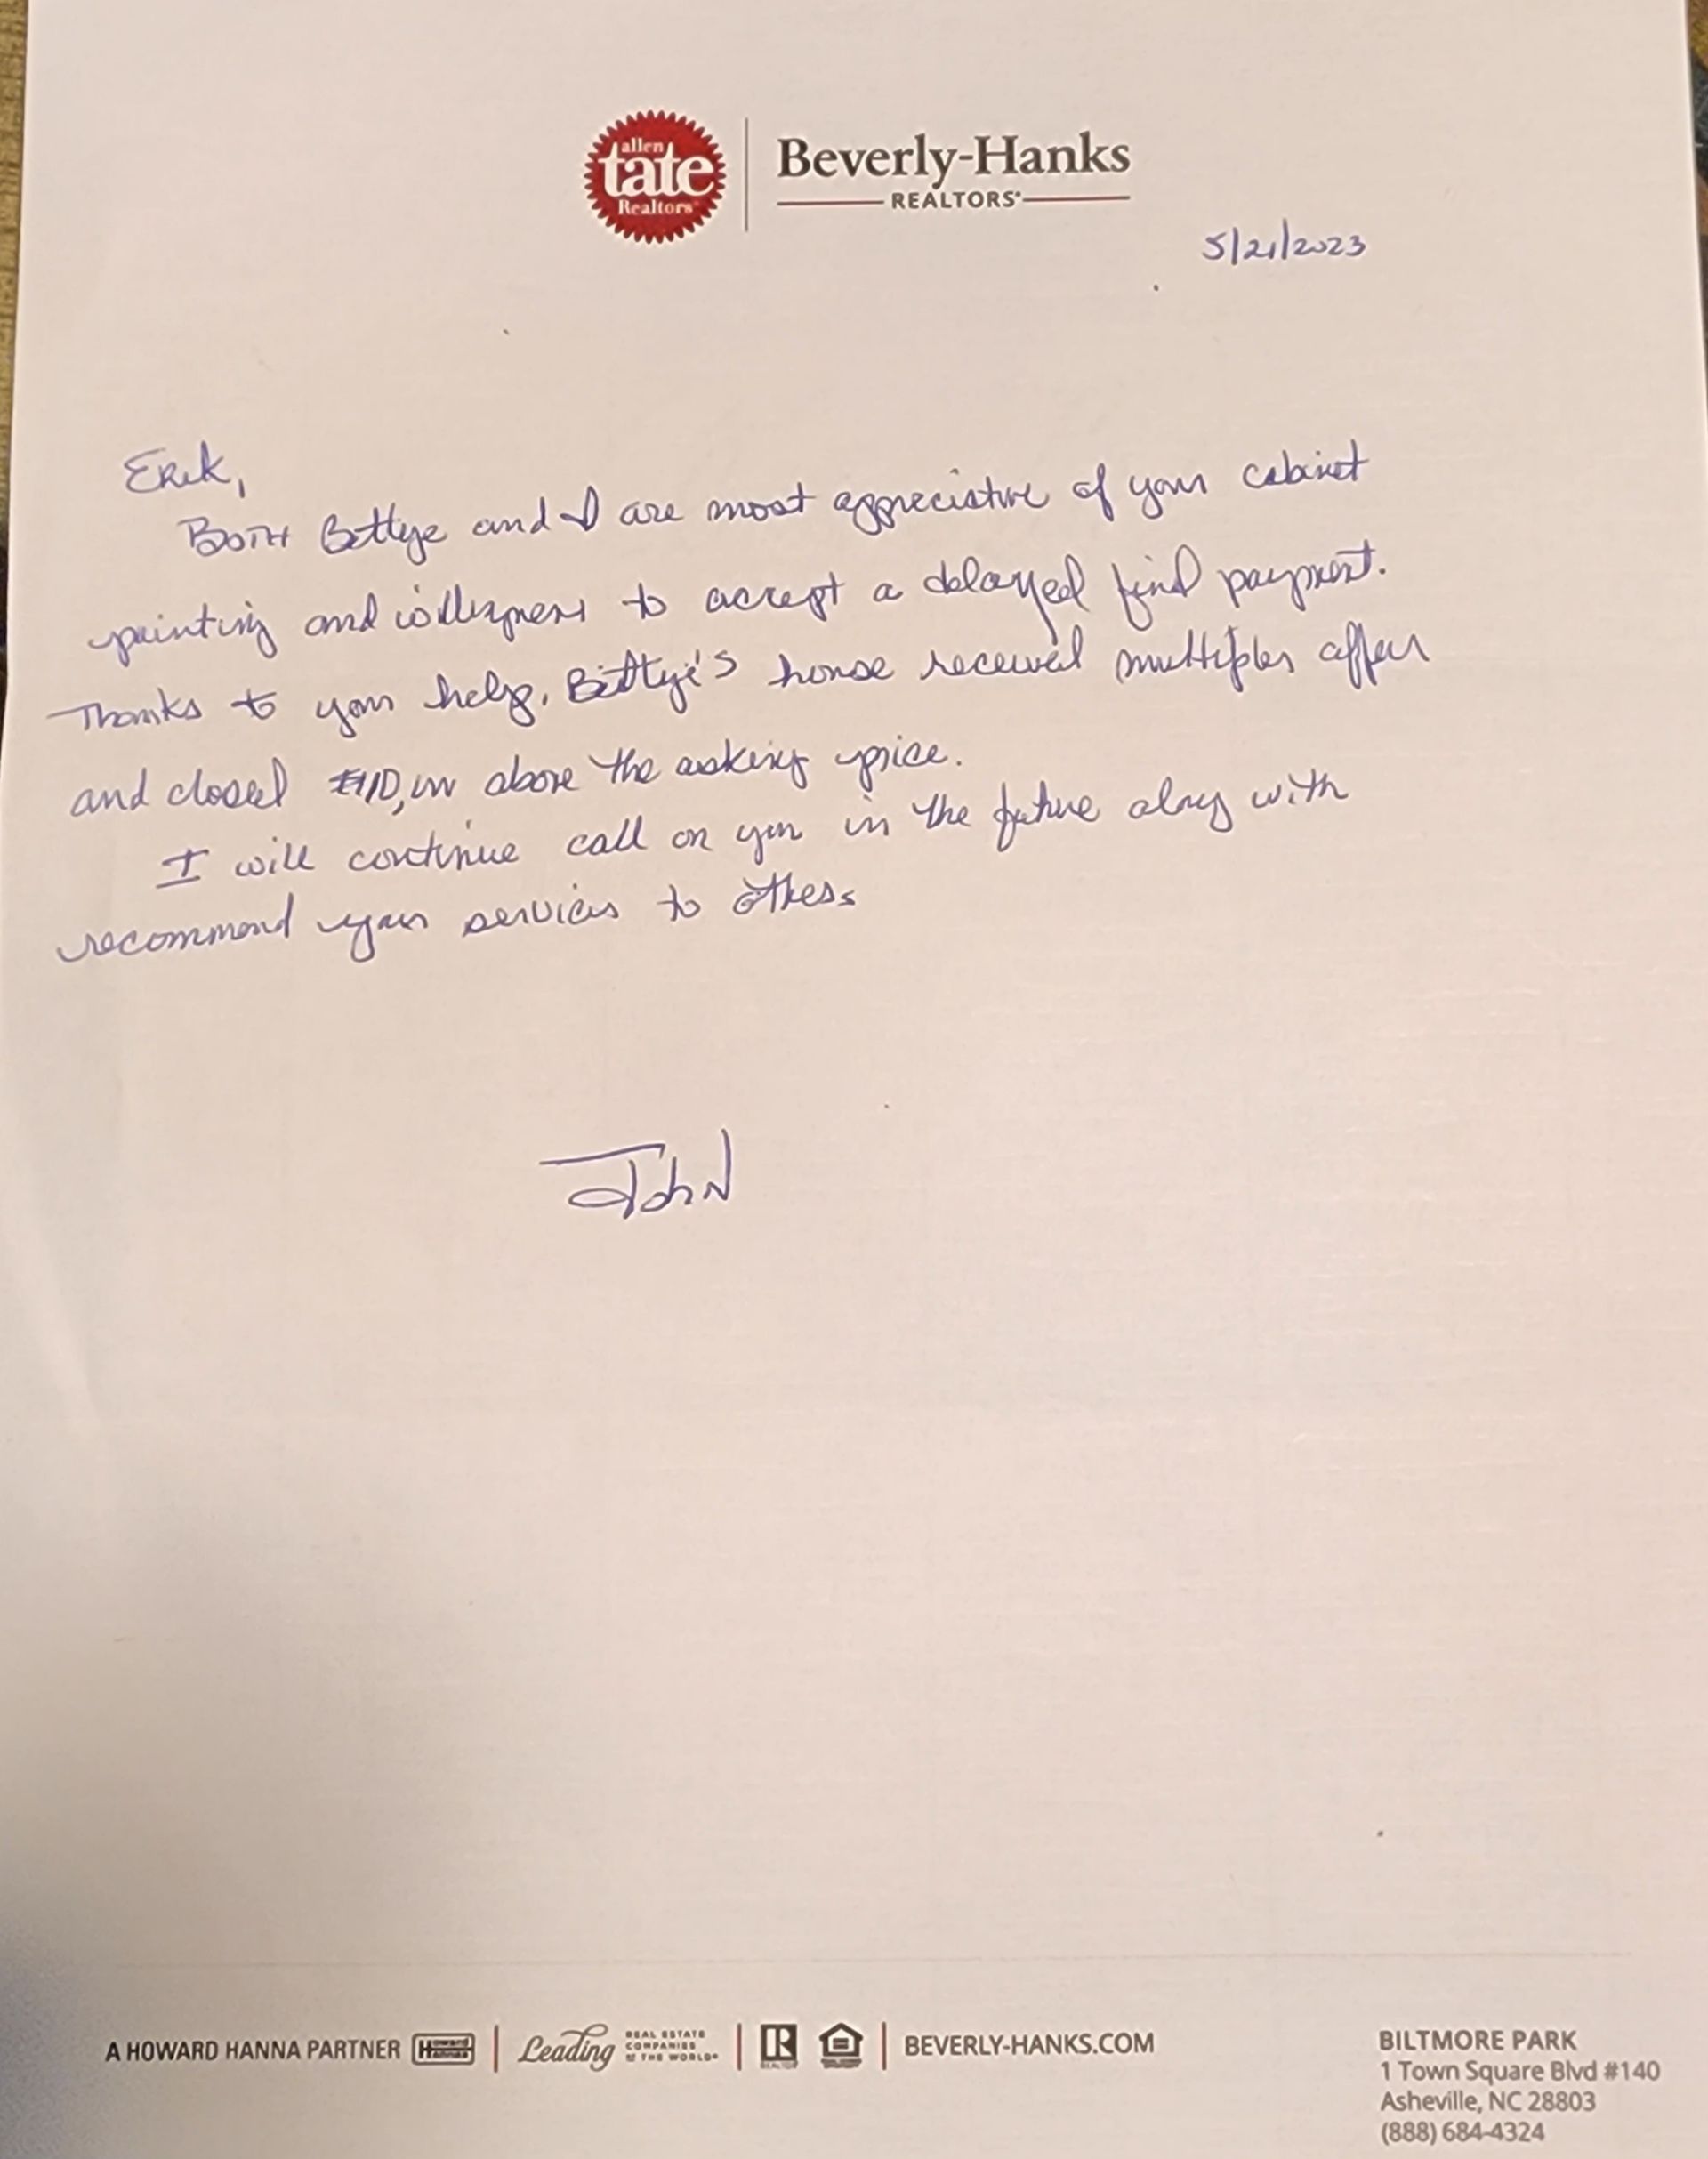 allen
tate
Realtors
Beverly-Hanks
REALTORS®
5/21/2023
Erik,
Both Bettye and I are most appreciative of your cabinet
painting and willingness to accept a delayed final payment.
Thanks to your help, Bettye's house received multiples offers
and closed above the asking price.
I will continue call on you in the future along with
recommend your services to others
John
A HOWARD HANNA PARTNER Howard Hanna
Leading REAL ESTATE
COMPANIES
OF THE WORLD®
R
REALTOR
BEVERLY-HANKS.COM
BILTMORE PARK
1 Town Square Blvd #140
Asheville, NC 28803
(888) 684-4324